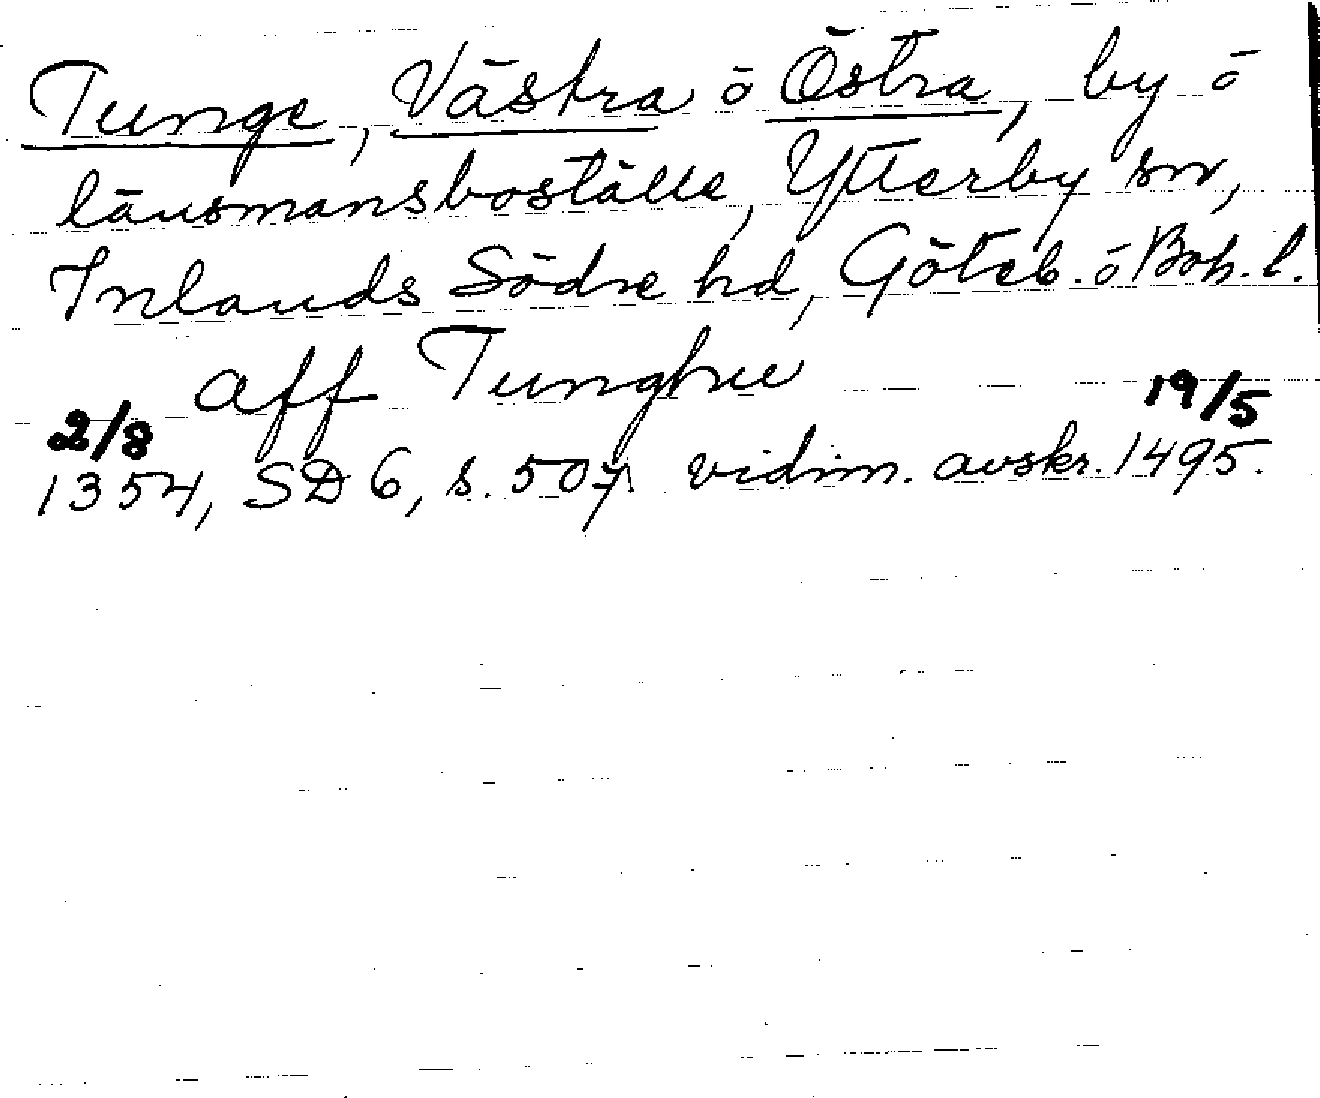 Tunge, Västra o Östra, by o
länsmansboställe, Ytterby sn,
Inlands Södre hd, Göteb. o Boh. l.
aff Tunghæ
2/8 19/5
1354, SD 6, s. 507. vidim. avskr. 1495.